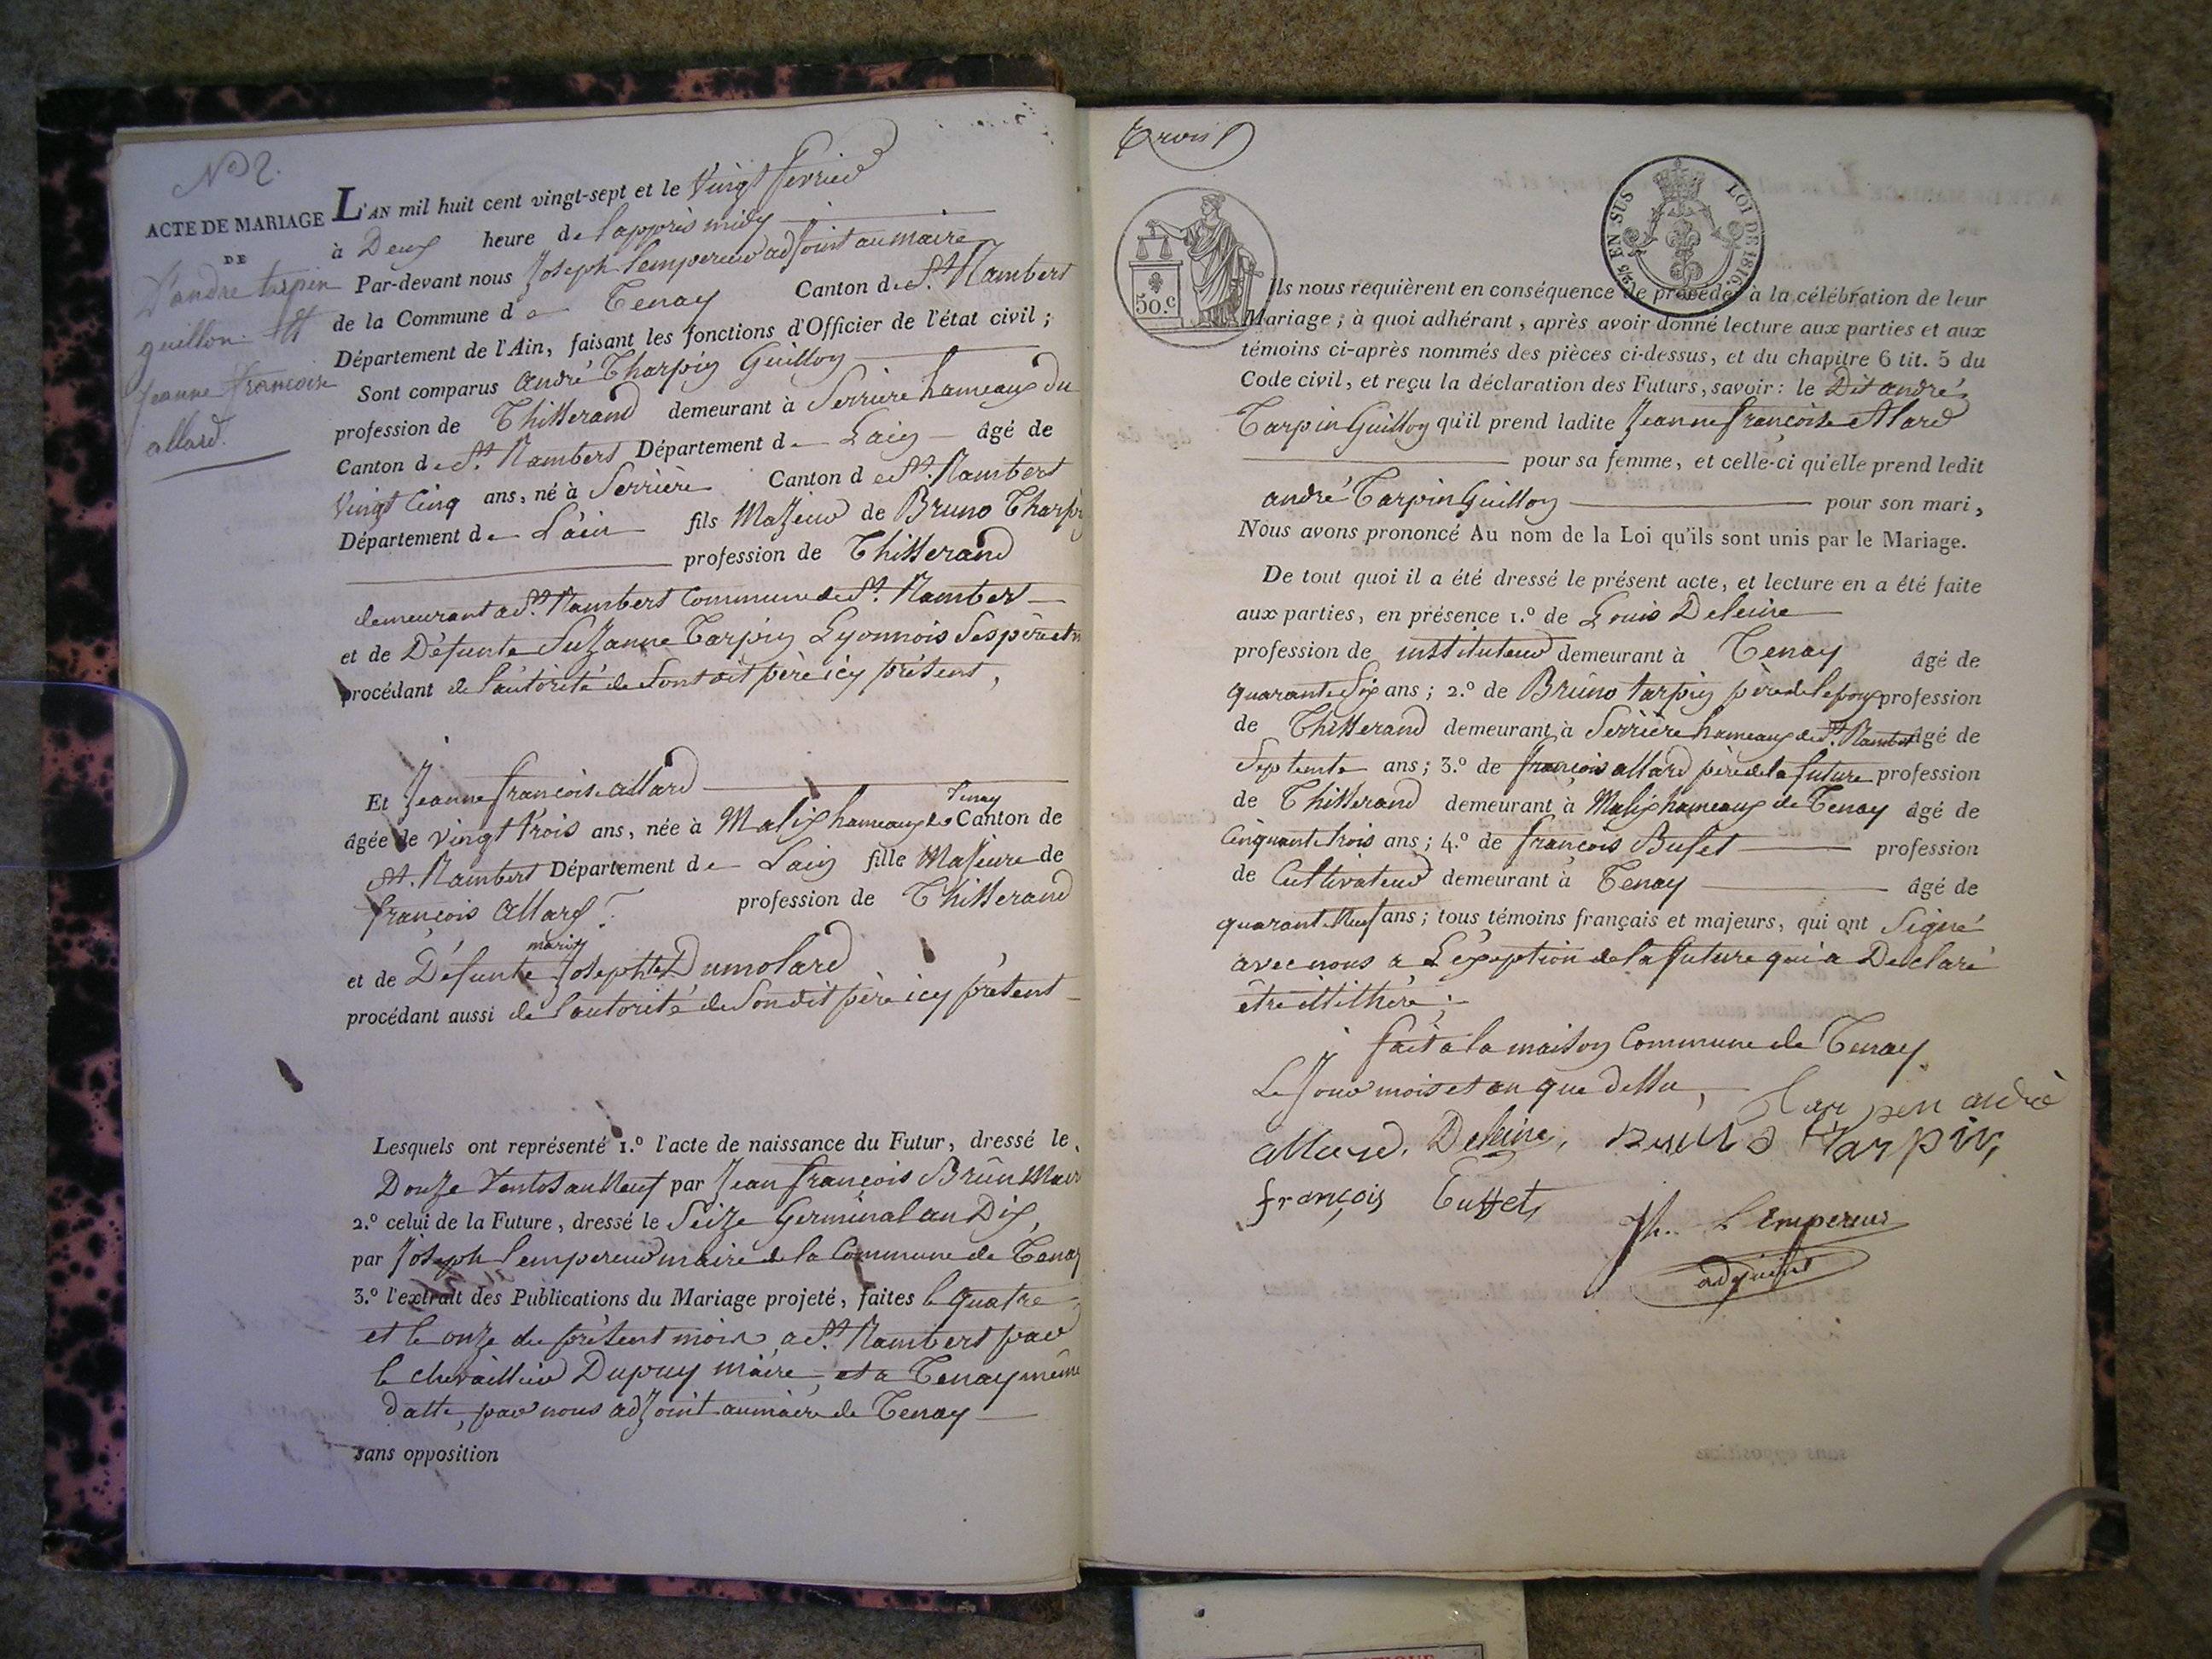 No 2.
ACTE DE MARIAGE
DE
D'andre tarpin
guillon Et
jeanne francoise
allard.
L'AN mil huit cent vingt-sept et le Vingt fevrier
à Deux heure de lapprès midy
Par-devant nous Joseph Lempereur adjoint au maire
de la Commune de Tenay Canton de St. Rambert
Département de l'Ain, faisant les fonctions d'Officier de l'état civil ;
Sont comparus andré Tharpin Guillon
profession de Thisserand demeurant à Serriere hameaux du
Canton de St. Rambert Département de Lain âgé de
Vingt Cinq ans, né à Serrière Canton de St. Rambert
Département de Lain fils Majeur de Bruno Tharpin
profession de Thisserand
demeurant a St. Rambert Commune de St. Rambert
et de Défunte Suzanne Tarpin Lyonnois Ses père et m
procédant de l'autorité de Sont dit père icy présent,
Et Jeanne françoise allard
Tenay
âgée de vingt trois ans, née à Malix hameaux de Canton de
St. Rambert Département de Lain fille Majeure de
françois allard profession de Thisserand
marie
et de Défunte Josephte Dumolard
procédant aussi de l'autorité de Son dit père icy présent
Lesquels ont représenté 1.o l'acte de naissance du Futur, dressé le
Douze Ventos an Neuf par Jean françois Brun Maire
2.o celui de la Future, dressé le Seize Germinal an Dix,
par Joseph Lempereur maire de la Commune de Tenay
3.o l'extrait des Publications du Mariage projeté, faites le quatre
et le onze du présent mois, a St. Rambert par
le chevaillier Dupuy maire, et a Tenay même
datte, par nous adjoint au maire de Tenay
sans opposition
Trois
50.c
EN SUS
LOI DE 1816
Ils nous requièrent en conséquence de procéder à la célébration de leur
Mariage ; à quoi adhérant, après avoir donné lecture aux parties et aux
témoins ci-après nommés des pièces ci-dessus, et du chapitre 6 tit. 5 du
Code civil, et reçu la déclaration des Futurs, savoir : le Dit andré
Tarpin Guillon qu'il prend ladite Jeanne françoise Alard
pour sa femme, et celle-ci qu'elle prend ledit
andré Tarpin Guillon pour son mari,
Nous avons prononcé Au nom de la Loi qu'ils sont unis par le Mariage.
De tout quoi il a été dressé le présent acte, et lecture en a été faite
aux parties, en présence 1.o de Louis Deleine
profession de instituteur demeurant à Tenay âgé de
quarante Six ans ; 2.o de Bruno tarpin père de lepoux profession
de Thisserand demeurant à Serrière hameaux de St. Rambert âgé de
Septente ans ; 3.o de françois allard père de la future profession
de Thisserand demeurant à Malix hameaux de Tenay âgé de
Cinquante trois ans ; 4.o de françois Bufet profession
de Cultivateur demeurant à Tenay âgé de
quarante Neuf ans ; tous témoins français et majeurs, qui ont Signé
avec nous a L'éxeption de la future qui a Declaré
être illithéré.
fait a la maison Commune de Tenay
Le Jour mois et an que dessu,
Tarpin andré
allard. Deleine, tarpin,
françois buffet,
Jh. L'Empereur
adjoint